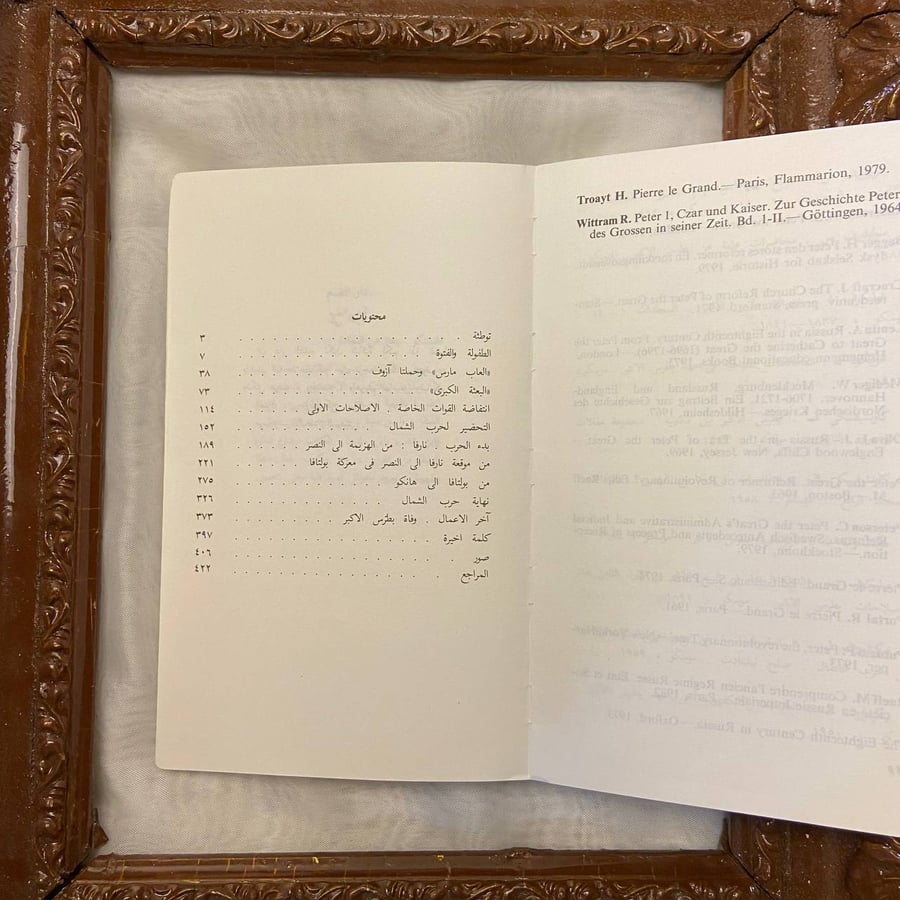 Troayt H. Pierre le Grand.— Paris, Flammarion, 1979.
Wittram R. Peter 1, Czar und Kaiser. Zur Geschichte Peter
des Grossen in seiner Zeit. Bd. 1-II.— Göttingen, 1964
محتويات
توطئة . . . . . . . . . . . . . . ٣
الطفولة والفتوة . . . . . . . . . . . ٧
«العاب مارس» وحملتا آزوف . . . . . . . . ٣٨
«البعثة الكبرى» . . . . . . . . . . . ٧٣
انتفاضة القوات الخاصة . الاصلاحات الاولى . . . . ١١٤
التحضير لحرب الشمال . . . . . . . . . ١٥٢
بدء الحرب . نارفا : من الهزيمة الى النصر . . . . ١٨٩
من موقعة نارفا الى النصر فى معركة بولتافا . . . . . . ٢٢١
من بولتافا الى هانكو . . . . . . . . . . ٢٧٥
نهاية حرب الشمال . . . . . . . . . . ٣٢٦
آخر الاعمال . وفاة بطرس الاكبر . . . . . . . ٣٧٣
كلمة اخيرة . . . . . . . . . . . . ٣٩٧
صور . . . . . . . . . . . . . . ٤٠٦
المراجع . . . . . . . . . . . . . ٤٢٢